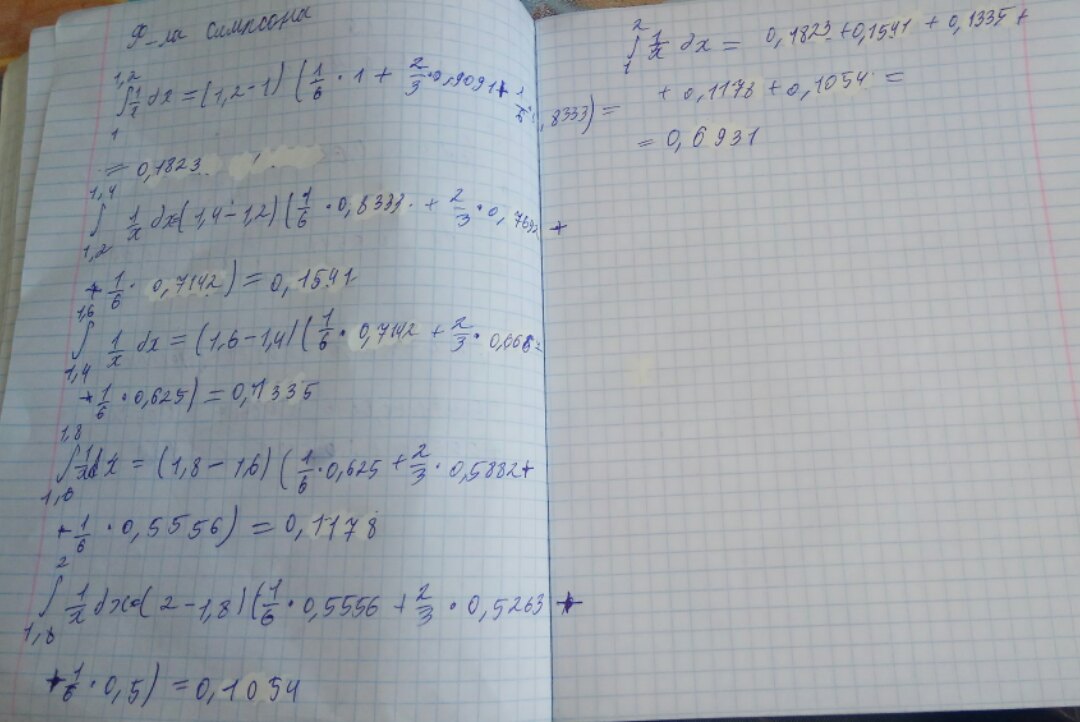 Ф-ла Симпсона
1,2
∫ 1/x dx = (1,2-1) (1/6 · 1 + 2/3 · 0,9091 + 1/6 · ,8333) =
1
= 0,1823
1,4
∫ 1/x dx (1,4-1,2) (1/6 · 0,8333 + 2/3 · 0,7692 +
1,2
+ 1/6 · 0,7142) = 0,1541
1,6
∫ 1/x dx = (1,6-1,4) (1/6 · 0,7142 + 2/3 · 0,666
1,4
+ 1/6 · 0,625) = 0,1335
1,8
∫ 1/x dx = (1,8-1,6) (1/6 · 0,625 + 2/3 · 0,5882 +
1,6
+ 1/6 · 0,5556) = 0,1178
2
∫ 1/x dx = (2-1,8) (1/6 · 0,5556 + 2/3 · 0,5263 +
1,8
+ 1/6 · 0,5) = 0,1054
2
∫ 1/x dx = 0,1823 + 0,1541 + 0,1335 +
1
+ 0,1178 + 0,1054 =
= 0,6931